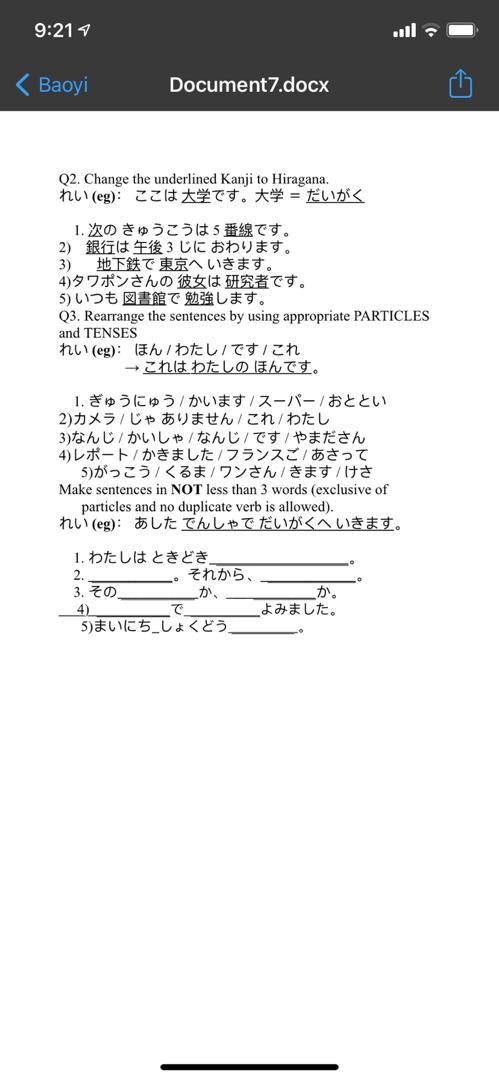 9:21
Baoyi
Document7.docx
Q2. Change the underlined Kanji to Hiragana.
れい (eg)： ここは 大学です。大学 ＝ だいがく
1. 次の きゅうこうは 5 番線です。
2) 銀行は 午後 3 じに おわります。
3) 地下鉄で 東京へ いきます。
4)タワポンさんの 彼女は 研究者です。
5) いつも 図書館で 勉強します。
Q3. Rearrange the sentences by using appropriate PARTICLES
and TENSES
れい (eg)： ほん / わたし / です / これ
→ これは わたしの ほんです。
1. ぎゅうにゅう / かいます / スーパー / おととい
2)カメラ / じゃ ありません / これ / わたし
3)なんじ / かいしゃ / なんじ / です / やまださん
4)レポート / かきました / フランスご / あさって
5)がっこう / くるま / ワンさん / きます / けさ
Make sentences in NOT less than 3 words (exclusive of
particles and no duplicate verb is allowed).
れい (eg)： あした でんしゃで だいがくへ いきます。
1. わたしは ときどき_______________。
2. _________。それから、__________。
3. その_________か、__________か。
4)_________で________よみました。
5)まいにち_しょくどう________。